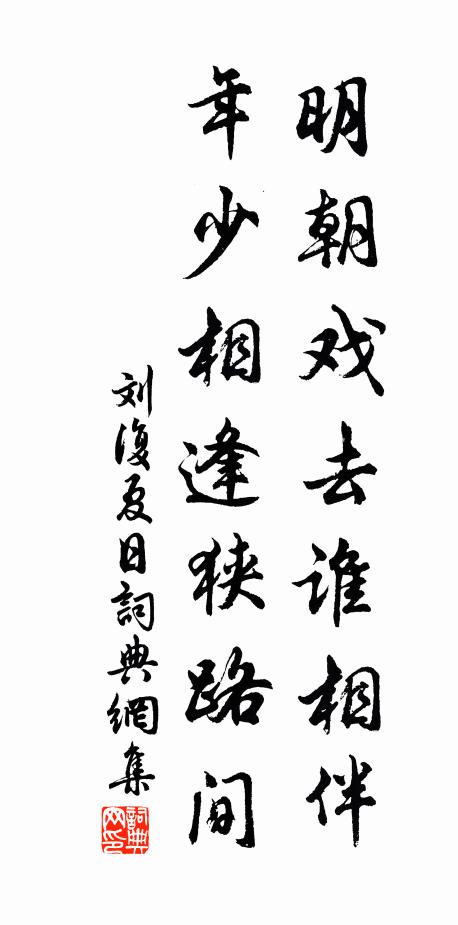 明朝戏去谁相伴
年少相逢狭路间
刘復夏日詞典網集
詞典
网印